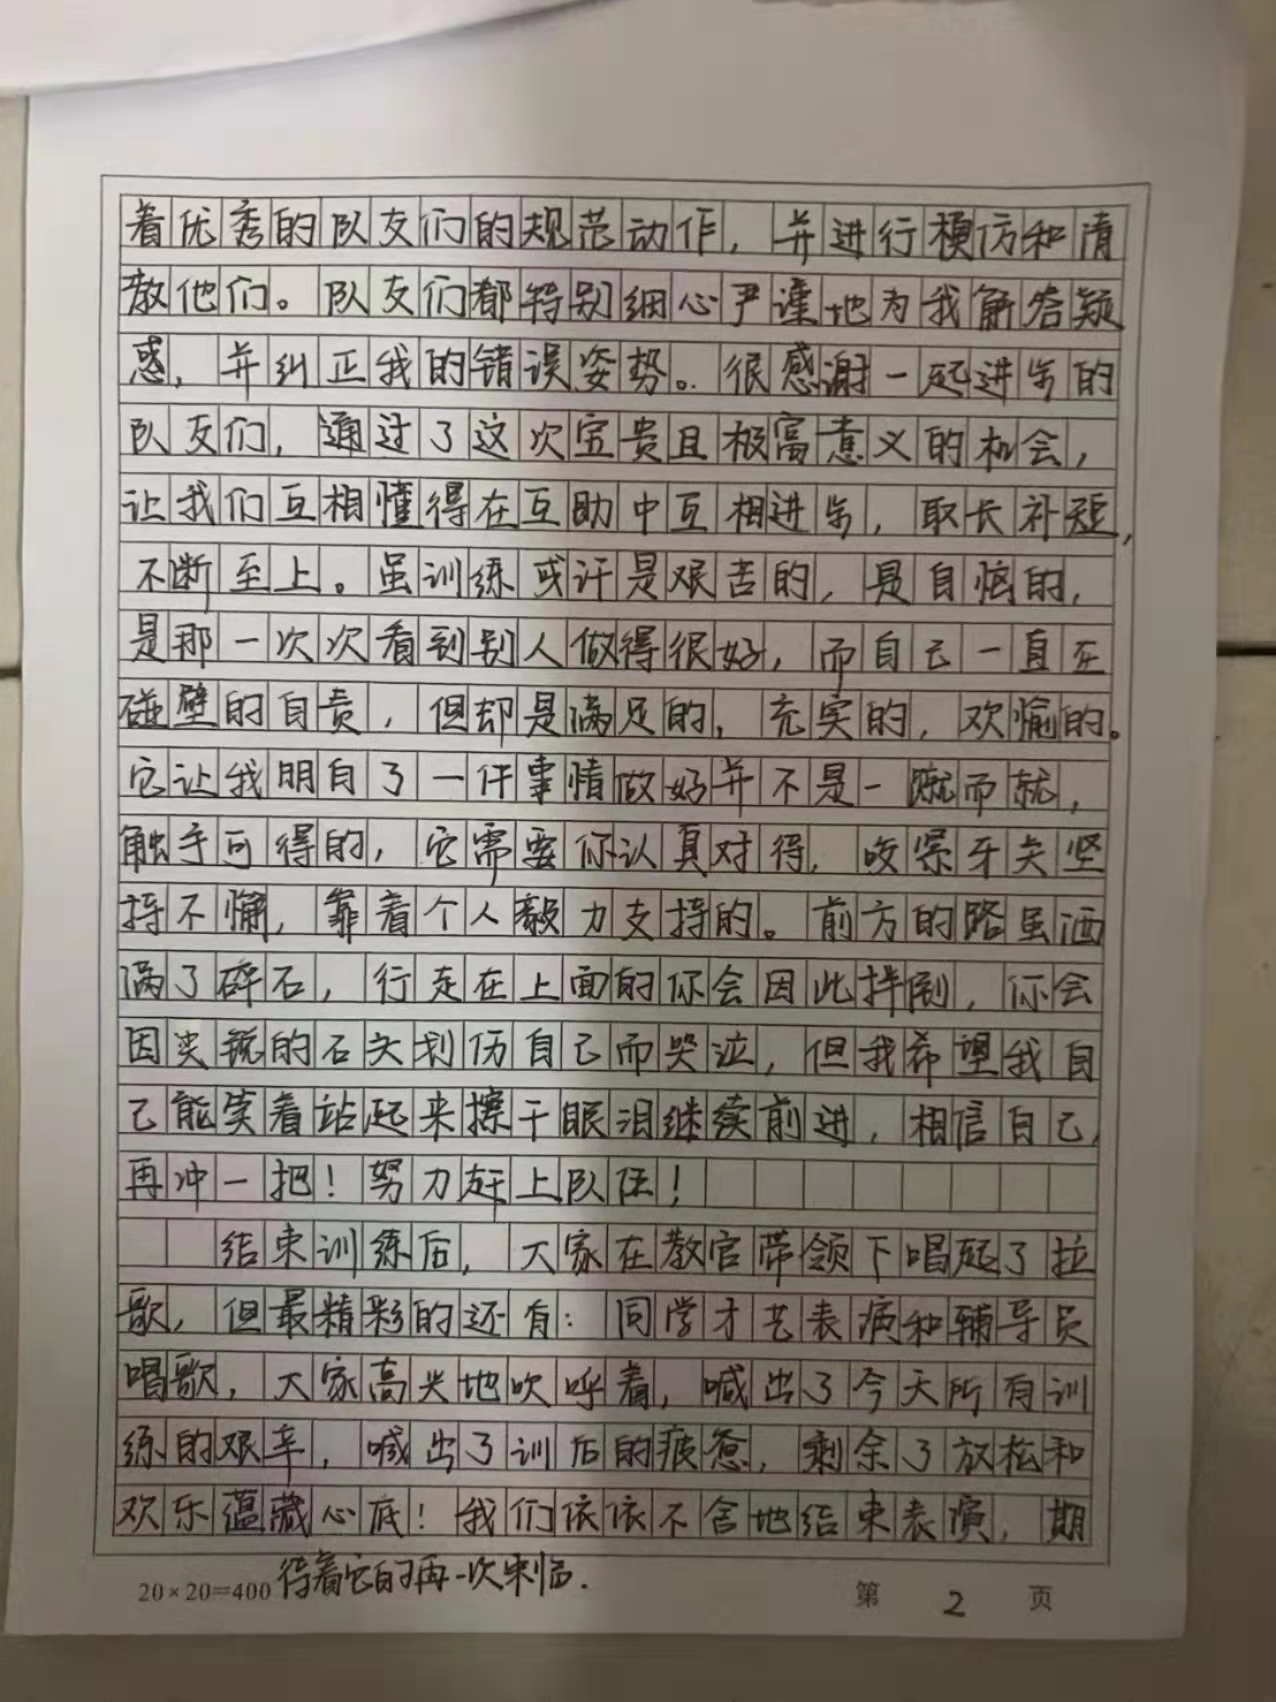 着优秀的队友们的规范动作，并进行模仿和请
教他们。队友们都特别细心严谨地为我解答疑
惑，并纠正我的错误姿势。很感谢一起进步的
队友们，通过了这次宝贵且极富意义的机会，
让我们互相懂得在互助中互相进步，取长补短，
不断至上。虽训练或许是艰苦的，是自恼的，
是那一次次看到别人做得很好，而自己一直在
碰壁的自责，但却是满足的，充实的，欢愉的。
它让我明白了一件事情做好并不是一蹴而就，
触手可得的，它需要你认真对待，咬紧牙关坚
持不懈，靠着个人毅力支持的。前方的路虽洒
满了碎石，行走在上面的你会因此拌倒，你会
因尖锐的石头划伤自己而哭泣，但我希望我自
己能笑着站起来擦干眼泪继续前进，相信自己，
再冲一把！努力赶上队伍！
结束训练后，大家在教官带领下唱起了拉
歌，但最精彩的还有：同学才艺表演和辅导员
唱歌，大家高兴地吹呼着，喊出了今天所有训
练的艰辛，喊出了训后的疲惫，剩余了放松和
欢乐蕴藏心底！我们依依不舍地结束表演，期
待着它的再一次来临.
20×20=400 第 2 页